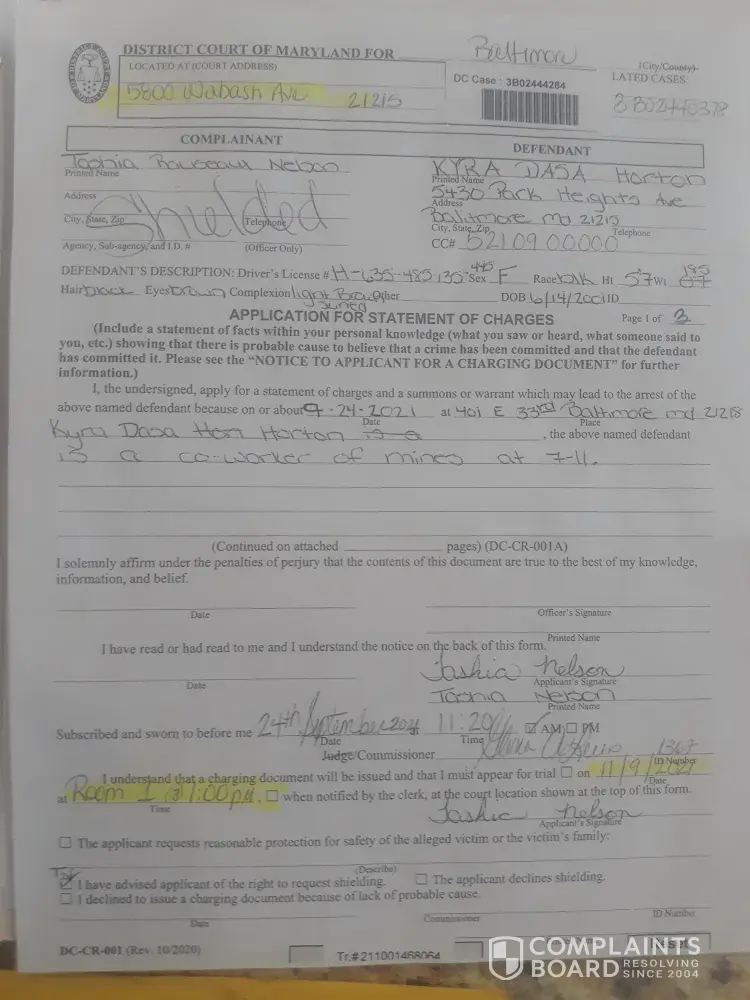 DISTRICT COURT OF MARYLAND FOR Baltimore
(City/County)
LOCATED AT (COURT ADDRESS)
DC Case : 3B02444284
LATED CASES:
5800 Wabash Ave 21215
3B02440378
COMPLAINANT
DEFENDANT
Tashia Nelson
KYRA DASA Horton
Printed Name
Printed Name
5430 Park Heights Ave
Address
Address
Shielded
Baltimore md 21215
City, State, Zip
Telephone
City, State, Zip
Telephone
CC# 5210900000
Agency, Sub-agency, and I.D. # (Officer Only)
DEFENDANT'S DESCRIPTION: Driver's License # H-635-485-135-445 Sex F Race Ht 5'7 Wt 195
Hair black Eyes brown Complexion light Brown Other DOB 6/14/2001 ID
APPLICATION FOR STATEMENT OF CHARGES
Page 1 of 3
(Include a statement of facts within your personal knowledge (what you saw or heard, what someone said to
you, etc.) showing that there is probable cause to believe that a crime has been committed and that the defendant
has committed it. Please see the "NOTICE TO APPLICANT FOR A CHARGING DOCUMENT" for further
information.)
I, the undersigned, apply for a statement of charges and a summons or warrant which may lead to the arrest of the
above named defendant because on or about 9-24-2021 at 401 E 33rd Baltimore md 21218
Date
Place
Kyra Dasa Horton, the above named defendant
is a co-worker of mines at 7-11.
(Continued on attached pages) (DC-CR-001A)
I solemnly affirm under the penalties of perjury that the contents of this document are true to the best of my knowledge,
information, and belief.
Date
Officer's Signature
Printed Name
I have read or had read to me and I understand the notice on the back of this form.
Tashia Nelson
Date
Applicant's Signature
Tashia Nelson
Printed Name
Subscribed and sworn to before me 24th September 2021 at 11:20 AM PM
Date
Time
1367
Judge/Commissioner
ID Number
I understand that a charging document will be issued and that I must appear for trial on 11/9/2021
Date
at Room 1 @ 1:00pm, when notified by the clerk, at the court location shown at the top of this form.
Time
Tashia Nelson
Applicant's Signature
The applicant requests reasonable protection for safety of the alleged victim or the victim's family:
(Describe)
I have advised applicant of the right to request shielding. The applicant declines shielding.
I declined to issue a charging document because of lack of probable cause.
Date
Commissioner
ID Number
DC-CR-001 (Rev. 10/2020)
Tr.# 211001468064
Reset
COMPLAINTS
BOARD RESOLVING SINCE 2004